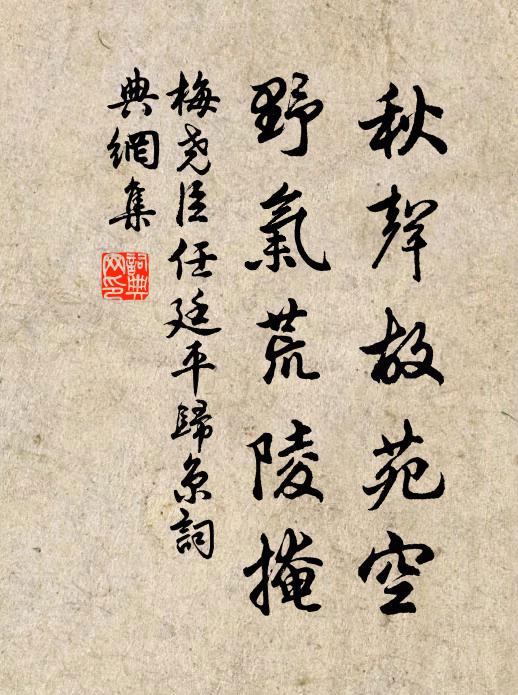 秋聲故苑空
野氣荒陵掩
梅堯臣任廷平歸京詞
典網集
詞典網印